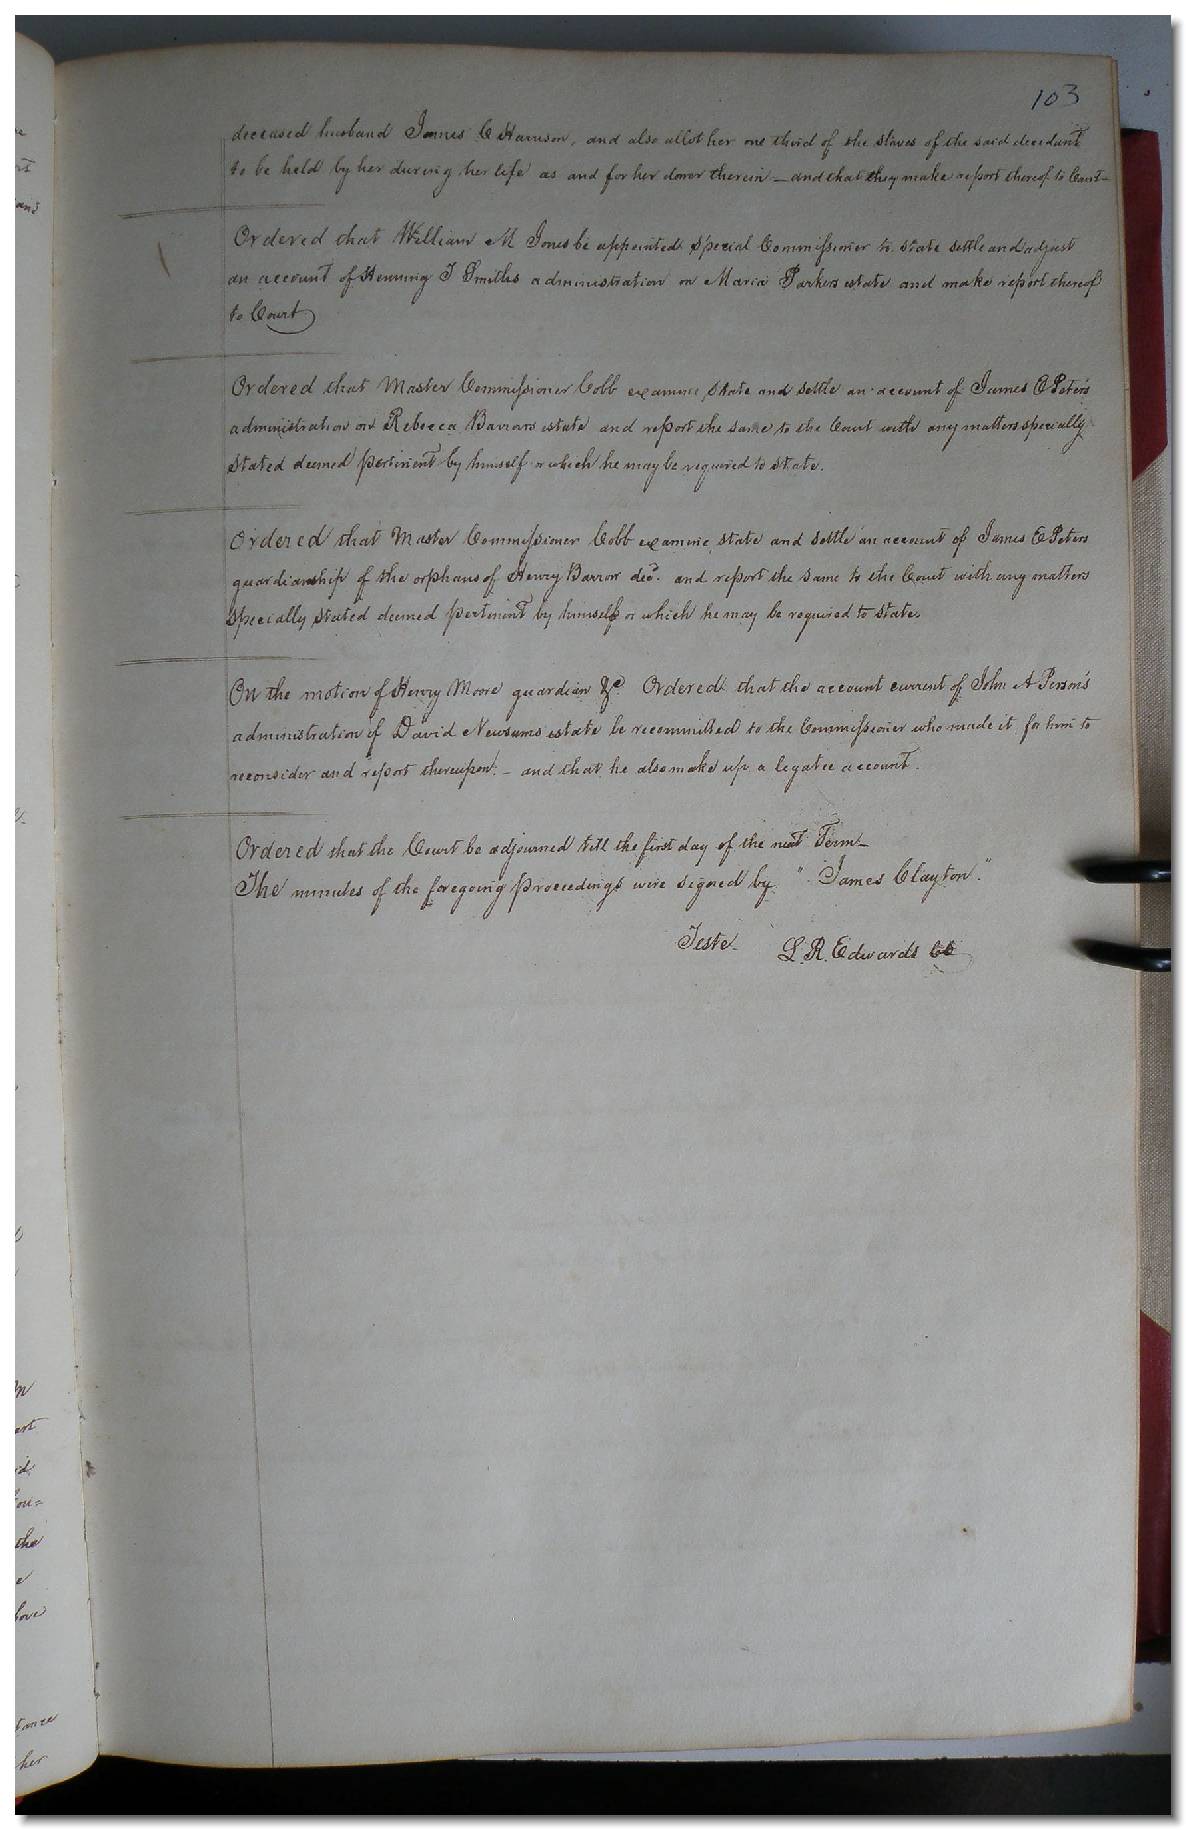 103
deceased husband James C Harrison, and also allot her one third of the slaves of the said decedant
to be held by her during her life as and for her dower therein – and that they make report thereof to Court –
Ordered that William M Jones be appointed Special Commissioner to state settle and adjust
an account of Henning T Smiths administration on Maria Parkers estate and make report thereof
to Court
Ordered that Master Commissioner Cobb examine, state and settle an account of James E Peters
administration on Rebecca Barrows estate and report the same to the Court with any matters specially
stated deemed pertinent by himself or which he may be required to state.
Ordered that Master Commissioner Cobb examine, state and settle an account of James E Peters
guardianship of the orphans of Henry Barrow decd. and report the same to the Court with any matters
specially stated deemed pertinent by himself or which he may be required to state.
On the motion of Henry Moore guardian &c Ordered that the account current of John A Person's
administration of David Newsums estate be recommitted to the Commissioner who made it for him to
reconsider and report thereupon. – and that he also make up a legatee account.
Ordered that the Court be adjourned till the first day of the next Term –
The minutes of the foregoing proceedings were signed by "James Clayton."
Teste. L. R. Edwards CC
tance
her
the